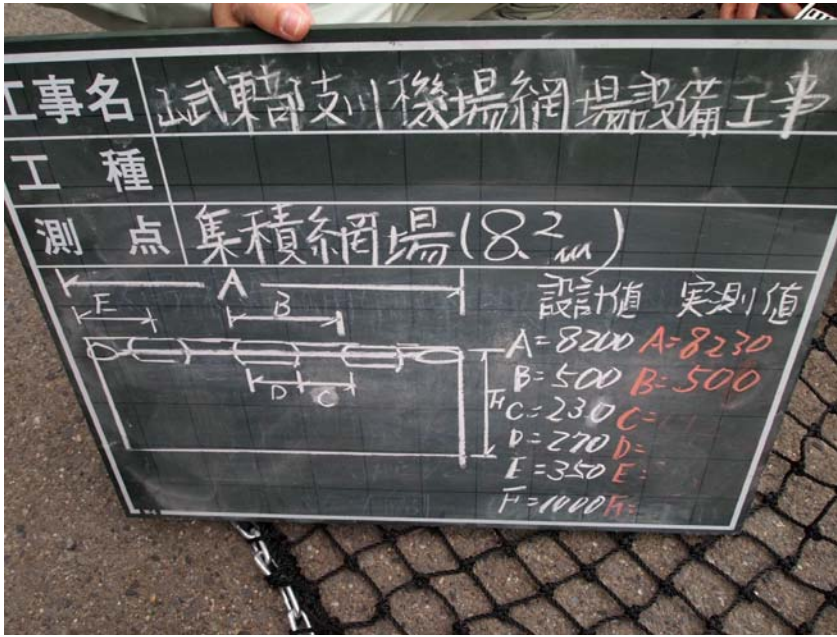 工事名 山武東部支川機場網場設備工事
工種
測点 集積網場(8.2m)
A
E B
D C
H
設計値 実測値
A=8200 A=8230
B=500 B=500
C=230 C=
D=270 D=
E=350 E=
H=1000 H=